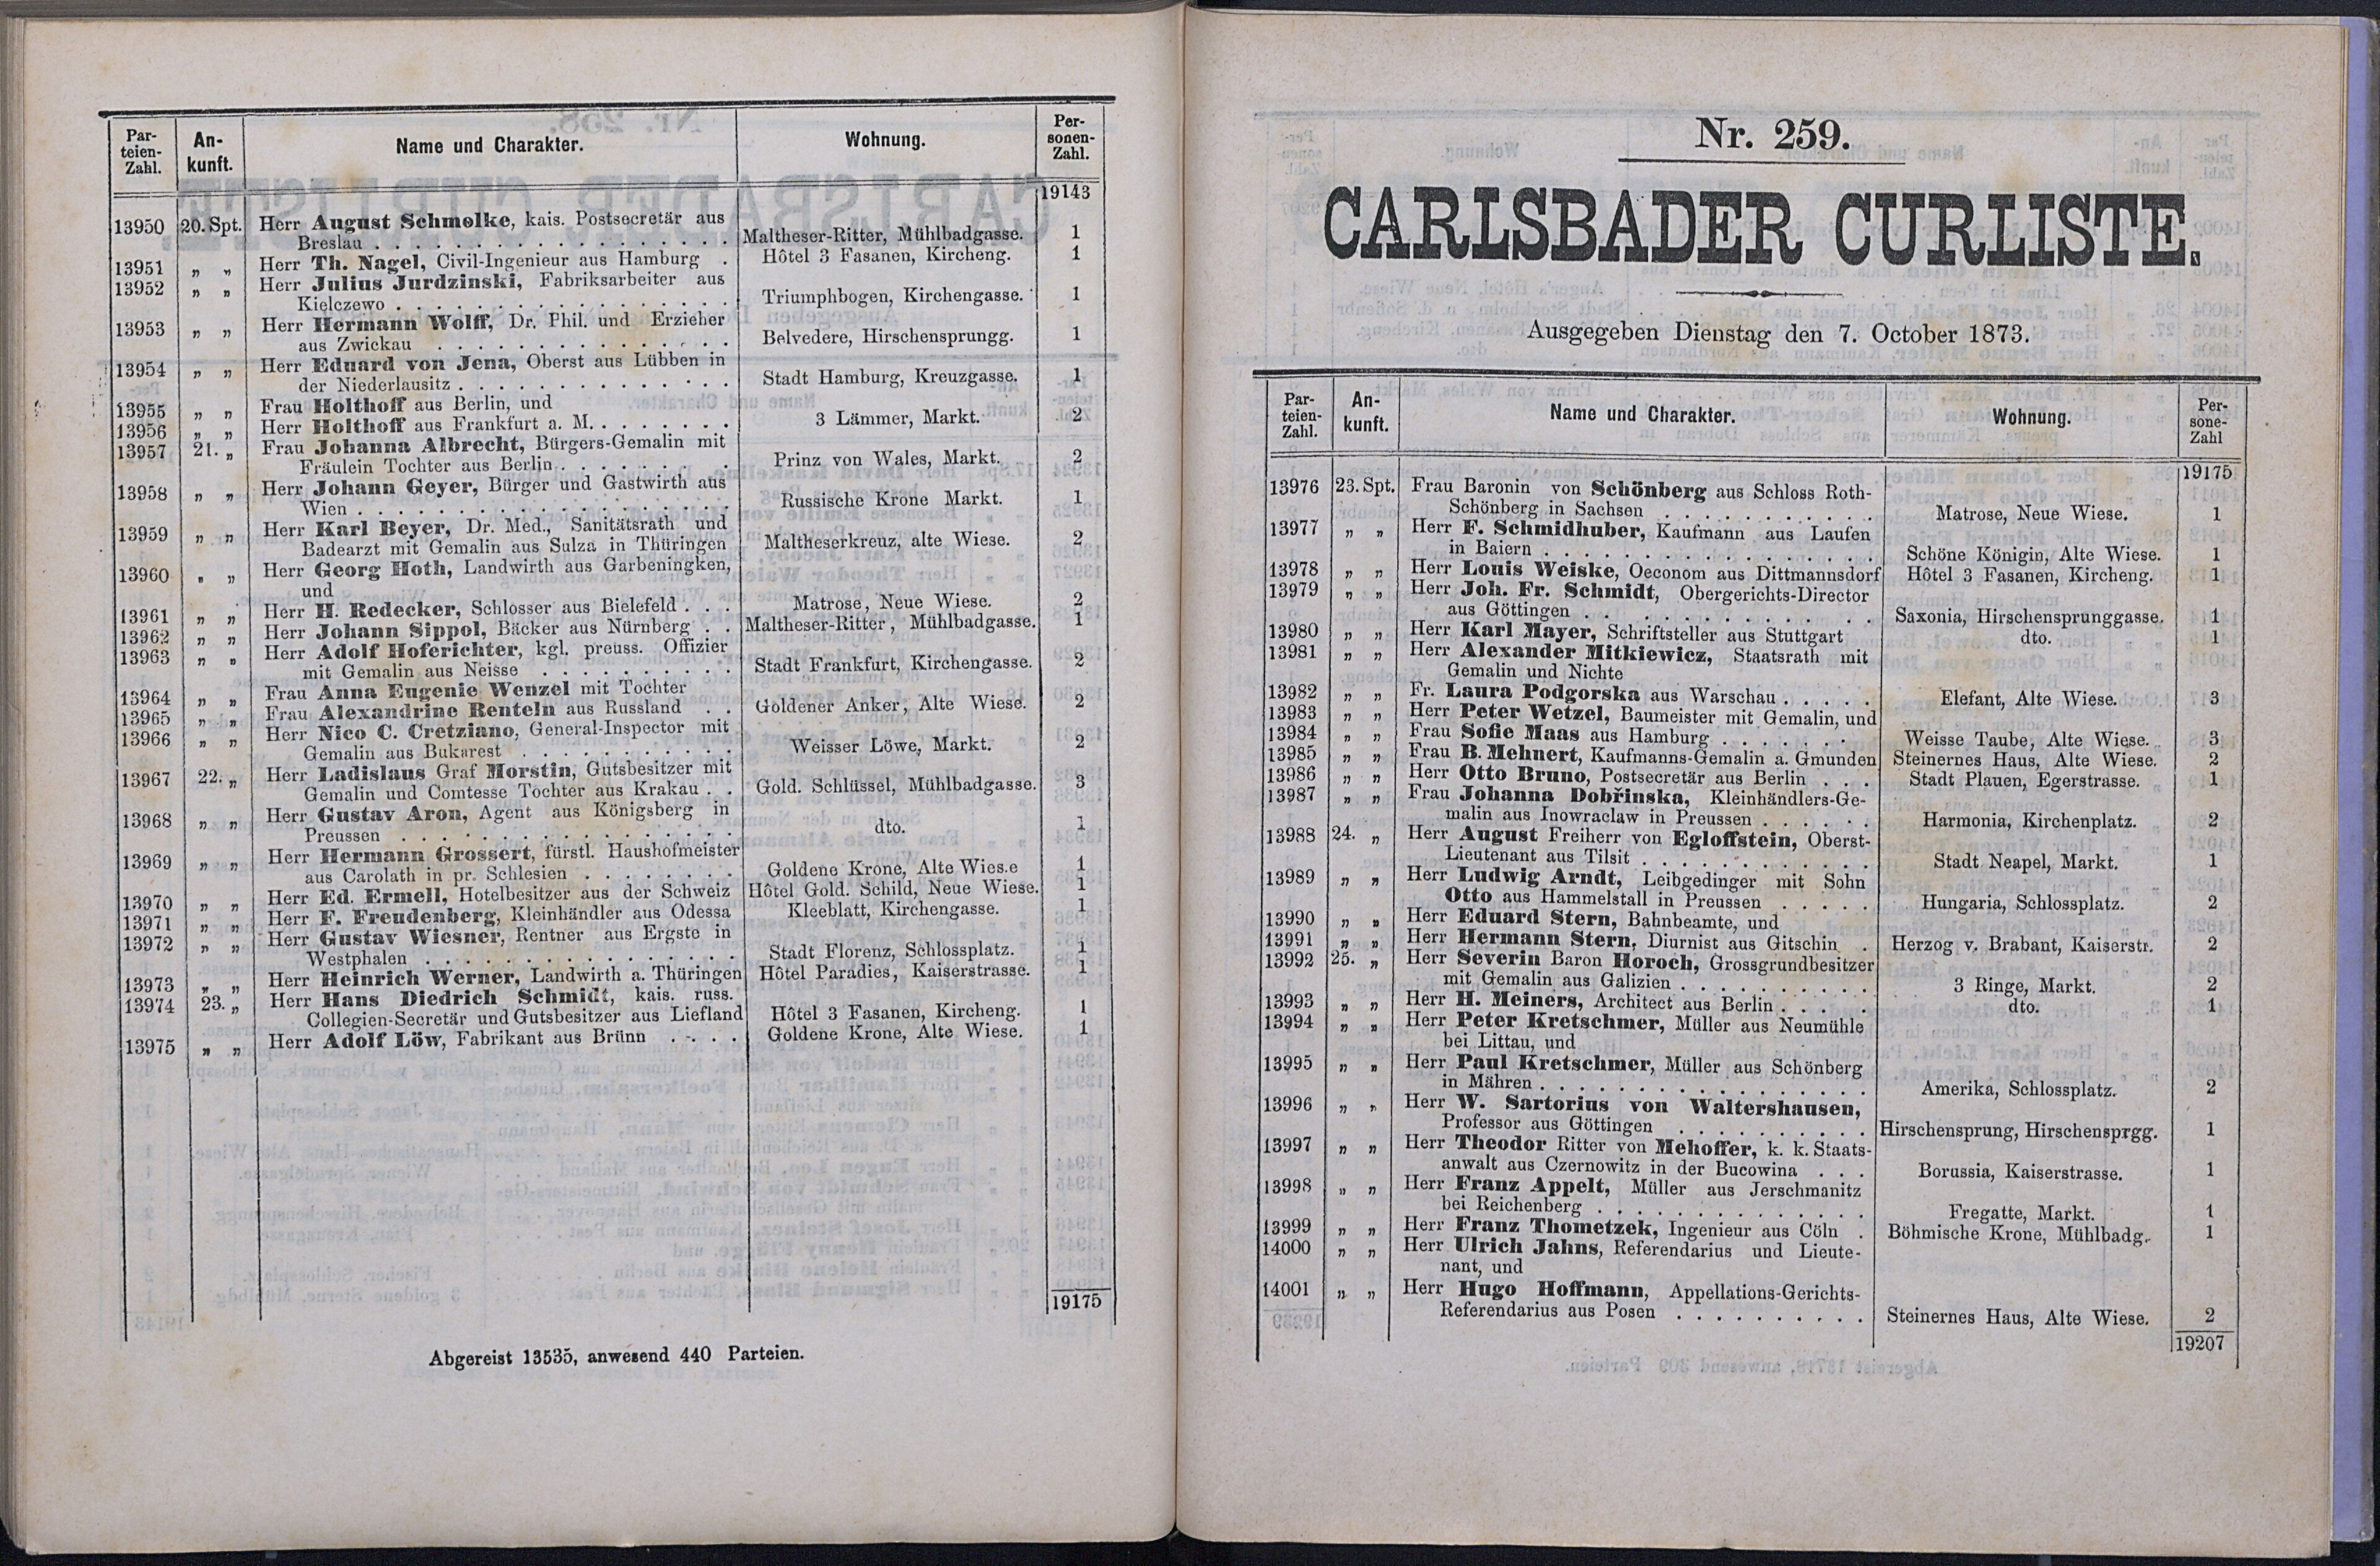 Par-
teien-
Zahl.
An-
kunft.
Name und Charakter.
Wohnung.
Per-
sonen-
Zahl.
19143
13950 20. Spt. Herr August Schmolke, kais. Postsecretär aus
Breslau . . . . . Maltheser-Ritter, Mühlbadgasse. 1
13951 „ „ Herr Th. Nagel, Civil-Ingenieur aus Hamburg . Hôtel 3 Fasanen, Kircheng. 1
13952 „ „ Herr Julius Jurdzinski, Fabriksarbeiter aus
Kielczewo . . . . . Triumphbogen, Kirchengasse. 1
13953 „ „ Herr Hermann Wolff, Dr. Phil. und Erzieher
aus Zwickau . . . . . Belvedere, Hirschensprungg. 1
13954 „ „ Herr Eduard von Jena, Oberst aus Lübben in
der Niederlausitz . . . . . Stadt Hamburg, Kreuzgasse. 1
13955 „ „ Frau Holthoff aus Berlin, und
13956 „ „ Herr Holthoff aus Frankfurt a. M. . . . . . 3 Lämmer, Markt. 2
13957 21. „ Frau Johanna Albrecht, Bürgers-Gemalin mit
Fräulein Tochter aus Berlin . . . . . Prinz von Wales, Markt. 2
13958 „ „ Herr Johann Geyer, Bürger und Gastwirth aus
Wien . . . . . Russische Krone Markt. 1
13959 „ „ Herr Karl Beyer, Dr. Med., Sanitätsrath und
Badearzt mit Gemalin aus Sulza in Thüringen Maltheserkreuz, alte Wiese. 2
13960 „ „ Herr Georg Hoth, Landwirth aus Garbeningken,
und
13961 „ „ Herr H. Redecker, Schlosser aus Bielefeld . . . Matrose, Neue Wiese. 2
13962 „ „ Herr Johann Sippol, Bäcker aus Nürnberg . . Maltheser-Ritter, Mühlbadgasse. 1
13963 „ „ Herr Adolf Hoferichter, kgl. preuss. Offizier
mit Gemalin aus Neisse . . . . . Stadt Frankfurt, Kirchengasse. 2
13964 „ „ Frau Anna Eugenie Wenzel mit Tochter
13965 „ „ Frau Alexandrine Renteln aus Russland . . Goldener Anker, Alte Wiese. 2
13966 „ „ Herr Nico C. Cretziano, General-Inspector mit
Gemalin aus Bukarest . . . . . Weisser Löwe, Markt. 2
13967 22. „ Herr Ladislaus Graf Morstin, Gutsbesitzer mit
Gemalin und Comtesse Tochter aus Krakau . . Gold. Schlüssel, Mühlbadgasse. 3
13968 „ „ Herr Gustav Aron, Agent aus Königsberg in
Preussen . . . . . dto. 1
13969 „ „ Herr Hermann Grossert, fürstl. Haushofmeister
aus Carolath in pr. Schlesien . . . . . Goldene Krone, Alte Wies.e 1
13970 „ „ Herr Ed. Ermell, Hotelbesitzer aus der Schweiz Hôtel Gold. Schild, Neue Wiese. 1
13971 „ „ Herr F. Freudenberg, Kleinhändler aus Odessa Kleeblatt, Kirchengasse. 1
13972 „ „ Herr Gustav Wiesner, Rentner aus Ergste in
Westphalen . . . . . Stadt Florenz, Schlossplatz. 1
13973 „ „ Herr Heinrich Werner, Landwirth a. Thüringen Hôtel Paradies, Kaiserstrasse. 1
13974 23. „ Herr Hans Diedrich Schmidt, kais. russ.
Collegien-Secretär und Gutsbesitzer aus Liefland Hôtel 3 Fasanen, Kircheng. 1
13975 „ „ Herr Adolf Löw, Fabrikant aus Brünn . . . . Goldene Krone, Alte Wiese. 1
19175
Abgereist 13535, anwesend 440 Parteien.
Nr. 259.
CARLSBADER CURLISTE.
Ausgegeben Dienstag den 7. October 1873.
Par-
teien-
Zahl.
An-
kunft.
Name und Charakter.
Wohnung.
Per-
sone-
Zahl
19175
13976 23. Spt. Frau Baronin von Schönberg aus Schloss Roth-
Schönberg in Sachsen . . . . . Matrose, Neue Wiese. 1
13977 „ „ Herr F. Schmidhuber, Kaufmann aus Laufen
in Baiern . . . . . Schöne Königin, Alte Wiese. 1
13978 „ „ Herr Louis Weiske, Oeconom aus Dittmannsdorf Hôtel 3 Fasanen, Kircheng. 1
13979 „ „ Herr Joh. Fr. Schmidt, Obergerichts-Director
aus Göttingen . . . . . Saxonia, Hirschensprunggasse. 1
13980 „ „ Herr Karl Mayer, Schriftsteller aus Stuttgart dto. 1
13981 „ „ Herr Alexander Mitkiewicz, Staatsrath mit
Gemalin und Nichte
13982 „ „ Fr. Laura Podgorska aus Warschau . . . . . Elefant, Alte Wiese. 3
13983 „ „ Herr Peter Wetzel, Baumeister mit Gemalin, und
13984 „ „ Frau Sofie Maas aus Hamburg . . . . . Weisse Taube, Alte Wiese. 3
13985 „ „ Frau B. Mehnert, Kaufmanns-Gemalin a. Gmunden Steinernes Haus, Alte Wiese. 2
13986 „ „ Herr Otto Bruno, Postsecretär aus Berlin . . . Stadt Plauen, Egerstrasse. 1
13987 „ „ Frau Johanna Dobřinska, Kleinhändlers-Ge-
malin aus Inowraclaw in Preussen . . . . . Harmonia, Kirchenplatz. 2
13988 24. „ Herr August Freiherr von Egloffstein, Oberst-
Lieutenant aus Tilsit . . . . . Stadt Neapel, Markt. 1
13989 „ „ Herr Ludwig Arndt, Leibgedinger mit Sohn
Otto aus Hammelstall in Preussen . . . . . Hungaria, Schlossplatz. 2
13990 „ „ Herr Eduard Stern, Bahnbeamte, und
13991 „ „ Herr Hermann Stern, Diurnist aus Gitschin . Herzog v. Brabant, Kaiserstr. 2
13992 25. „ Herr Severin Baron Horoch, Grossgrundbesitzer
mit Gemalin aus Galizien . . . . . 3 Ringe, Markt. 2
13993 „ „ Herr H. Meiners, Architect aus Berlin . . . . . dto. 1
13994 „ „ Herr Peter Kretschmer, Müller aus Neumühle
bei Littau, und
13995 „ „ Herr Paul Kretschmer, Müller aus Schönberg
in Mähren . . . . . Amerika, Schlossplatz. 2
13996 „ „ Herr W. Sartorius von Waltershausen,
Professor aus Göttingen . . . . . Hirschensprung, Hirschensprgg. 1
13997 „ „ Herr Theodor Ritter von Mehoffer, k. k. Staats-
anwalt aus Czernowitz in der Bucowina . . . Borussia, Kaiserstrasse. 1
13998 „ „ Herr Franz Appelt, Müller aus Jerschmanitz
bei Reichenberg . . . . . Fregatte, Markt. 1
13999 „ „ Herr Franz Thometzek, Ingenieur aus Cöln . Böhmische Krone, Mühlbadg. 1
14000 „ „ Herr Ulrich Jahns, Referendarius und Lieute-
nant, und
14001 „ „ Herr Hugo Hoffmann, Appellations-Gerichts-
Referendarius aus Posen . . . . . Steinernes Haus, Alte Wiese. 2
19207